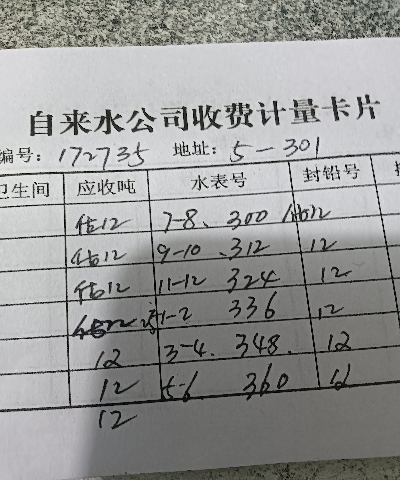 自来水公司收费计量卡片
编号: 172735 地址: 5-301
卫生间 应收吨 水表号 封铅号
估12 7-8、 300 12
估12 9-10 、312 12
估12 11-12 324 12
1-2 336 12
12 3-4. 348. 12
12 5-6 360 12
12